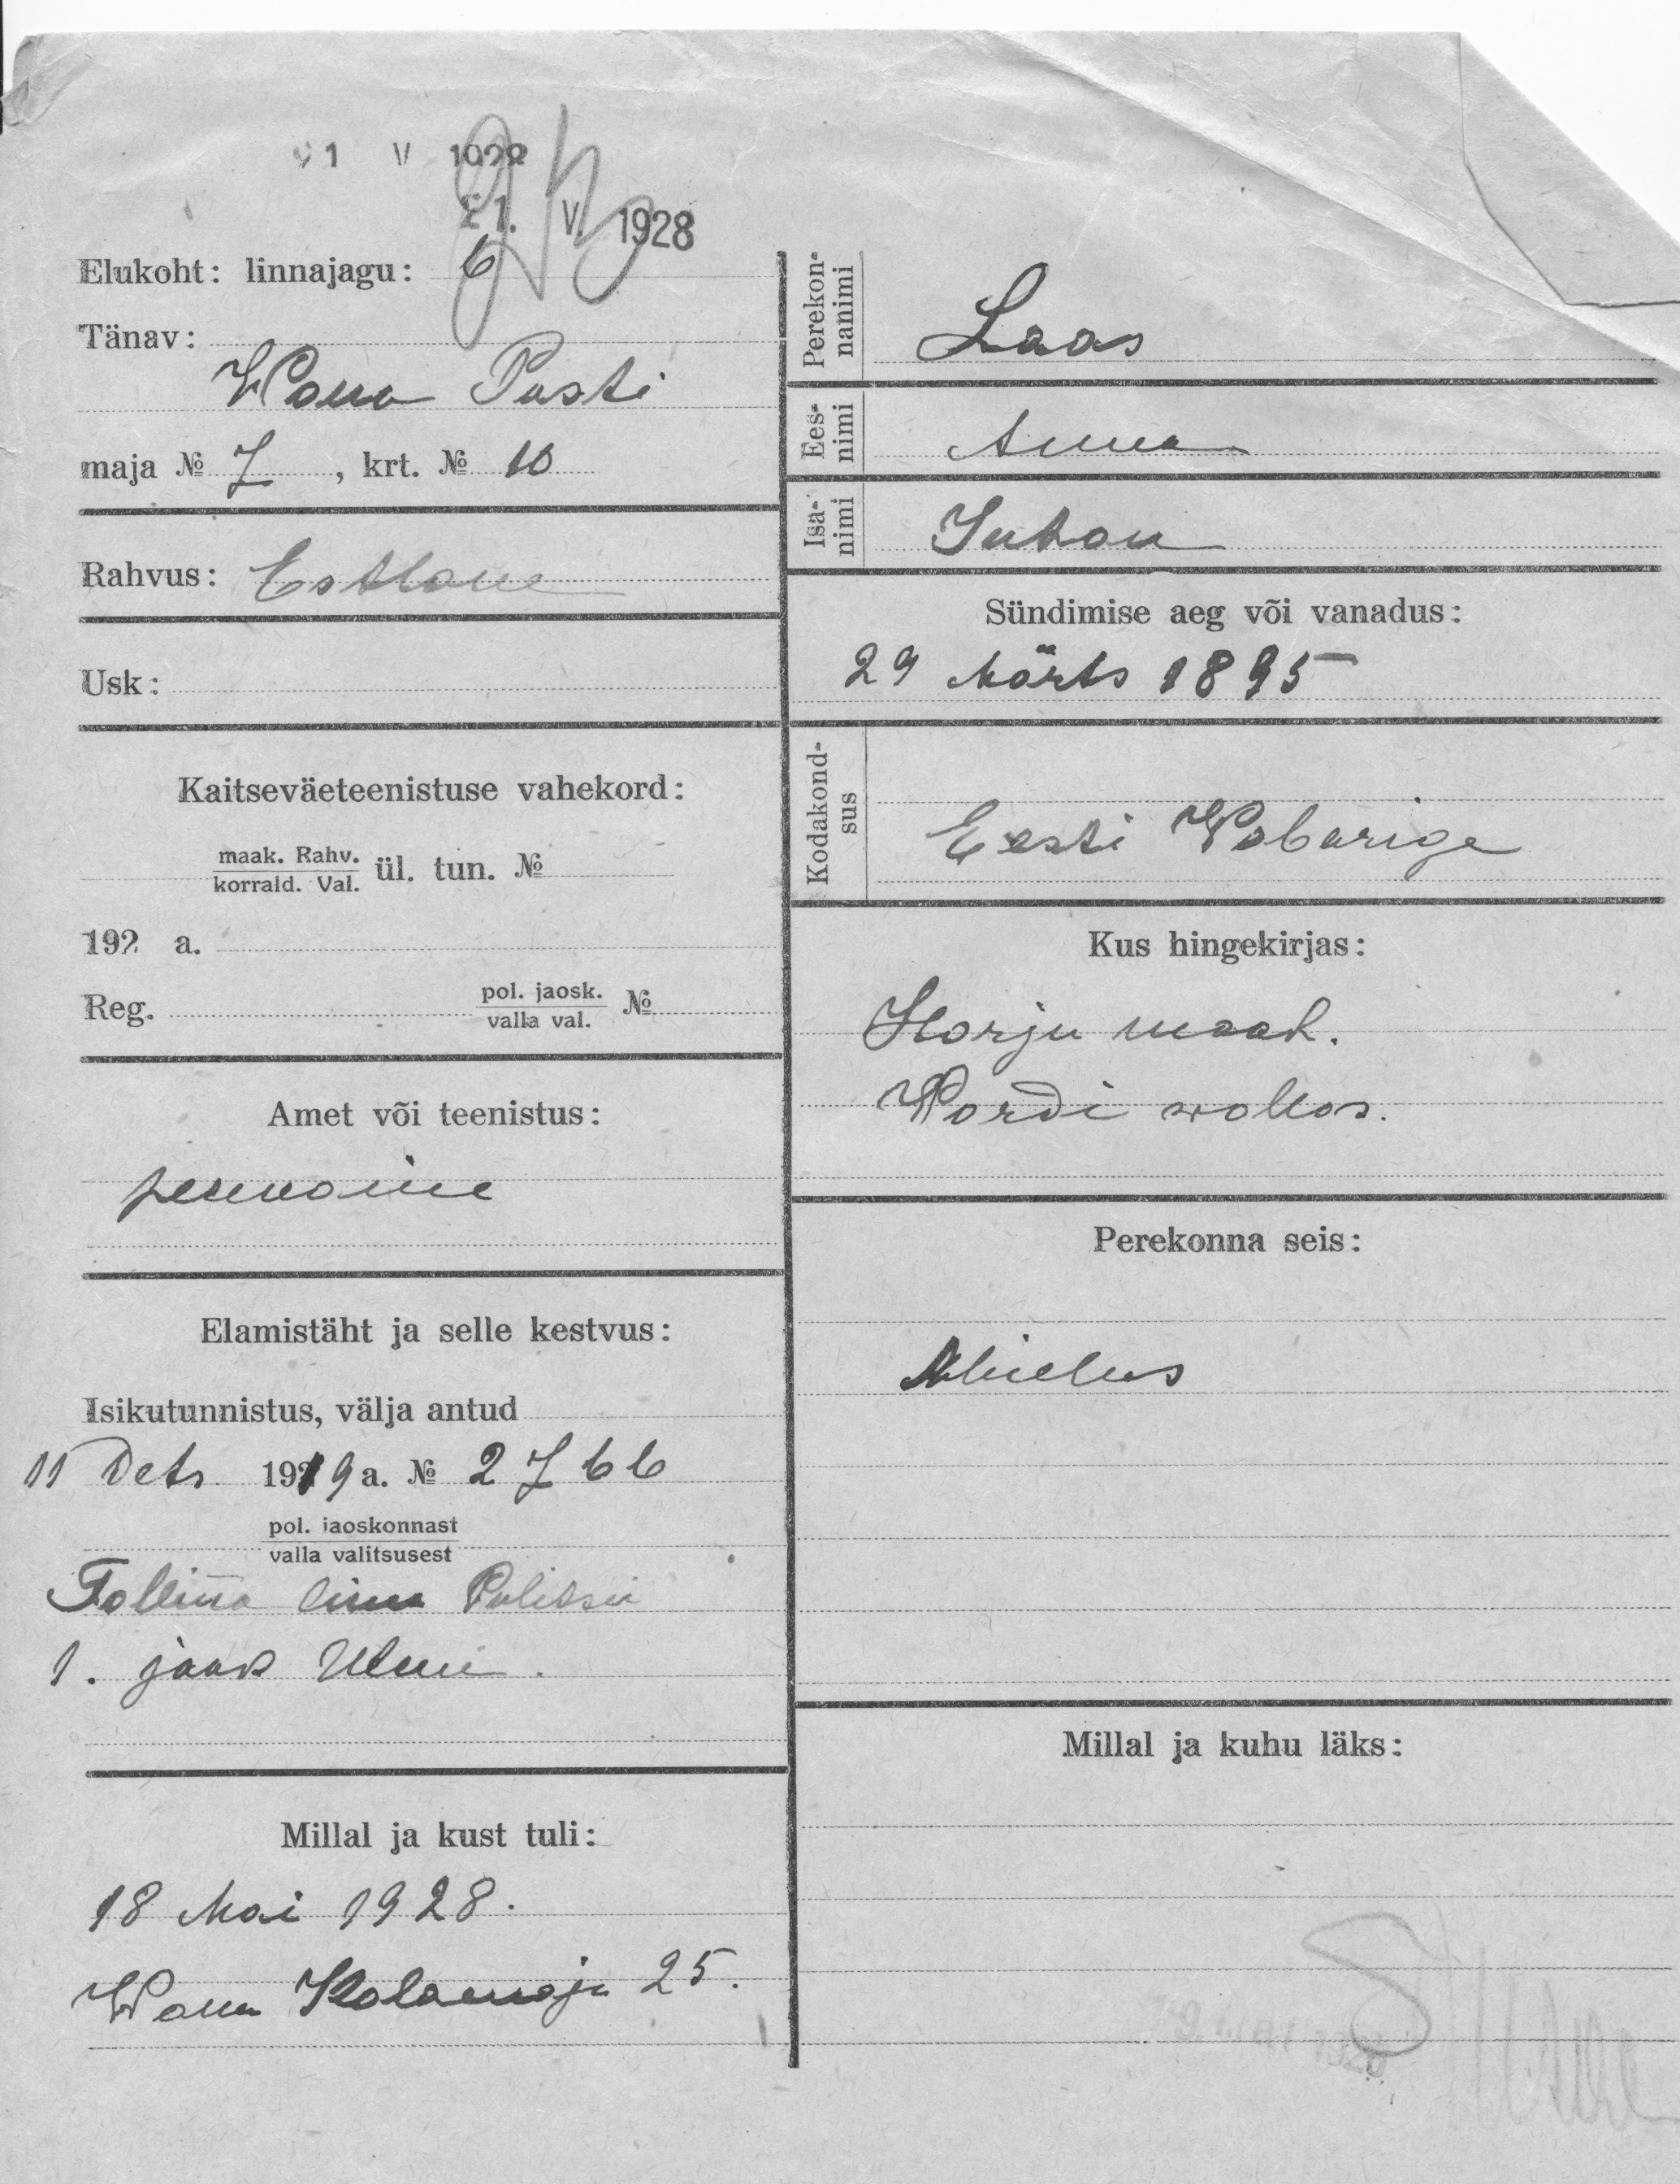 21 V 1928
21. V. 1928
Elukoht: linnajagu: 6
Tänav:
Wana Posti
maja № 7, krt. № 10
Rahvus: Estlane
Usk:
Kaitseväeteenistuse vahekord:
maak. Rahv.
korrald. Val. ül. tun. №
192 a.
Reg. pol. jaosk.
valla val. №
Amet või teenistus:
perenaine
Elamistäht ja selle kestvus:
Isikutunnistus, välja antud
11 Dets. 1919 a. № 2766
pol. jaoskonnast
valla valitsusest
Tallinna linna Politsei
1. jaosk
Millal ja kust tuli:
18 Mai 1928.
Wana Kalamaja 25.
Perekon-
nanimi
Laas
Ees-
nimi
Anna
Isa-
nimi
Juhan
Sündimise aeg või vanadus:
29 Märts 1895
Kodakond-
sus
Eesti Wabarige
Kus hingekirjas:
Harju maak.
Wardi wallas.
Perekonna seis:
Abielus
Millal ja kuhu läks: